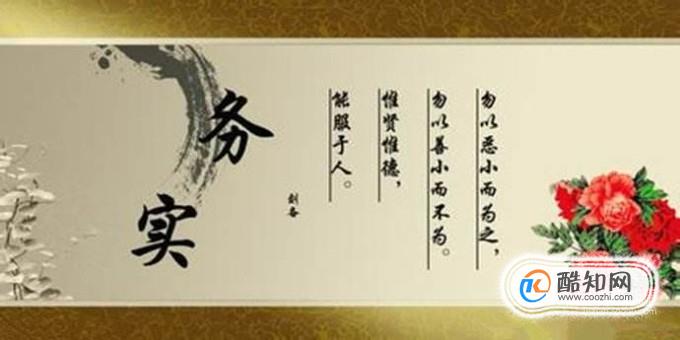 勿以恶小而为之，
勿以善小而不为。
惟贤惟德，
能服于人。
刘备
务实
酷知网
www.coozhi.com